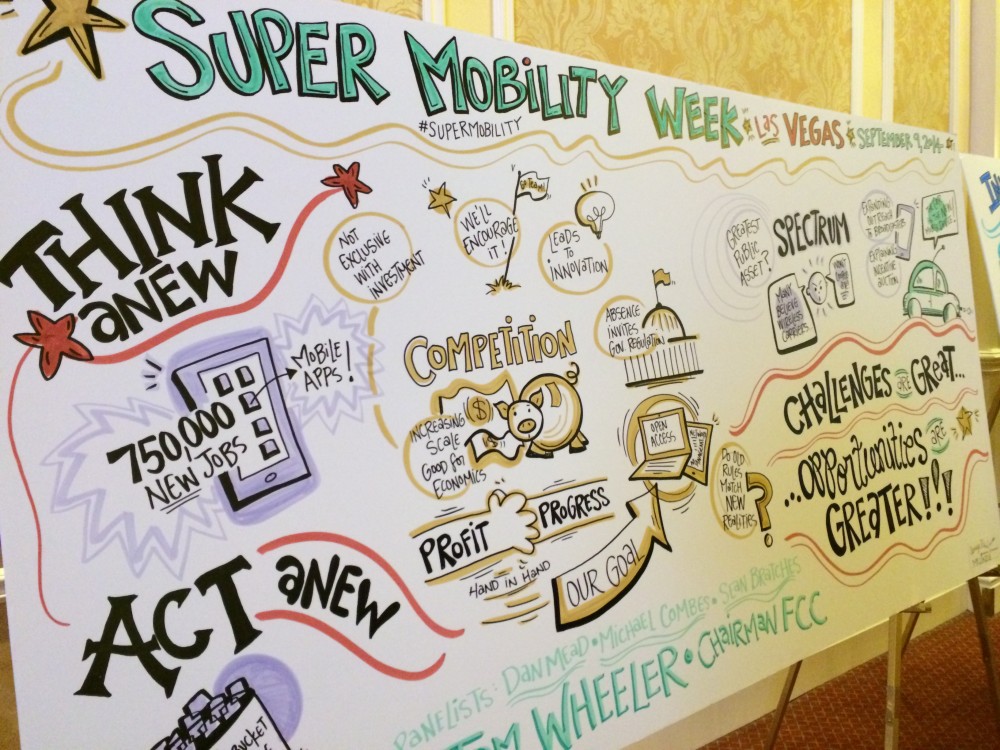 SUPER MOBILITY WEEK LAS VEGAS SEPTEMBER 9, 2014
#SUPERMOBILITY
THINK
ANEW
750,000
NEW JOBS
MOBILE
APPS!
ACT ANEW
BUCKET
NOT
EXCLUSIVE
WITH
INVESTMENT
WE'LL
ENCOURAGE
IT!
GO TEAM!
LEADS
TO
INNOVATION
COMPETITION
INCREASING
SCALE
GOOD FOR
ECONOMICS
$
ABSENCE
INVITES
GOV REGULATION
PROFIT
PROGRESS
HAND IN HAND
OPEN
ACCESS
OUR GOAL
DO OLD
RULES
MATCH
NEW
REALITIES
?
GREATEST
PUBLIC
ASSET?
SPECTRUM
MANY
BELIEVE
WIRELESS
CARRIERS
EXPANDING
OUTREACH
TO BROADCASTERS
EXPLAINING
INCENTIVE
AUCTION
CHALLENGES ARE GREAT...
...OPPORTUNITIES ARE
GREATER!!!
PANELISTS: DAN MEAD • MICHAEL COMBES • SEAN BRATCHES
TOM WHEELER • CHAIRMAN FCC